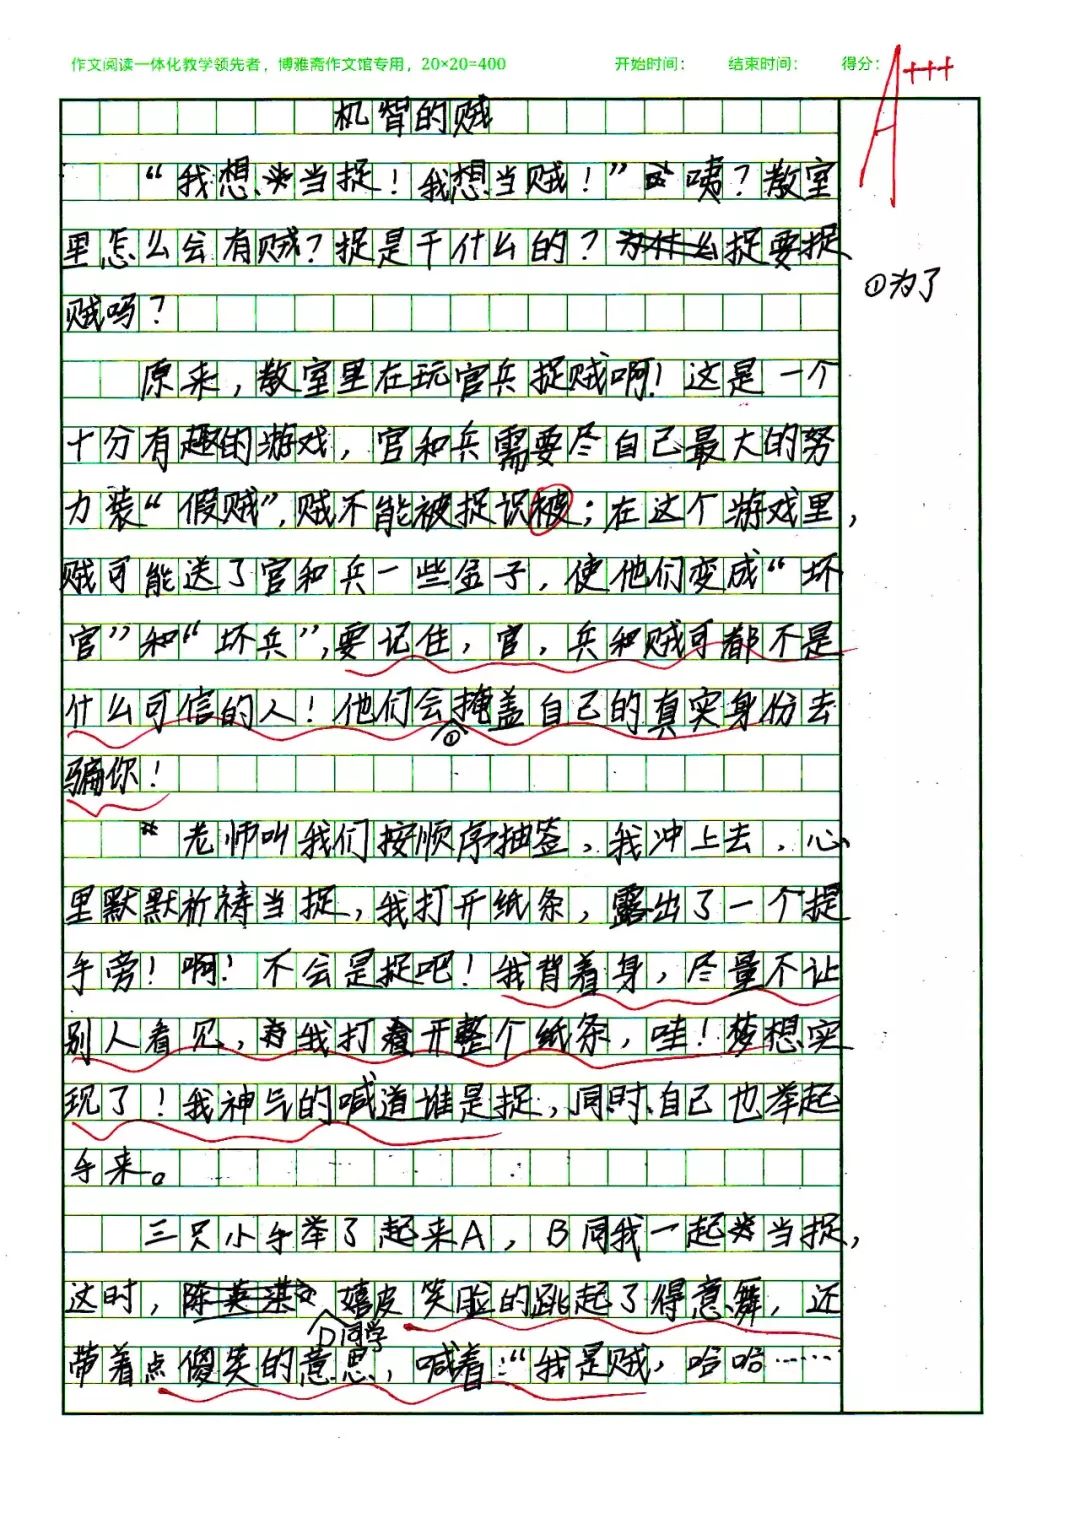 作文阅读一体化教学领先者，博雅斋作文馆专用，20×20=400 开始时间： 结束时间： 得分：A+++
机智的贼
“我想当捉！我想当贼！”咦？教室
里怎么会有贼？捉是干什么的？为什么捉要捉
①为了
贼吗？
原来，教室里在玩官兵捉贼啊！这是一个
十分有趣的游戏，官和兵需要尽自己最大的努
力装“假贼”，贼不能被捉识被；在这个游戏里，
贼可能送了官和兵一些金子，使他们变成“坏
官”和“坏兵”，要记住，官，兵和贼可都不是
什么可信的人！他们会掩盖自己的真实身份去
①
骗你！
老师叫我们按顺序抽签，我冲上去，心
里默默祈祷当捉，我打开纸条，露出了一个提
手旁！啊！不会是捉吧！我背着身，尽量不让
别人看见，我打开整个纸条，哇！梦想实
现了！我神气的喊道谁是捉，同时自己也举起
手来。
三只小手举了起来A，B同我一起当捉，
这时，嬉皮笑脸的跳起了得意舞，还
D同学
带着点傻笑的意思，喊着：“我是贼，哈哈……